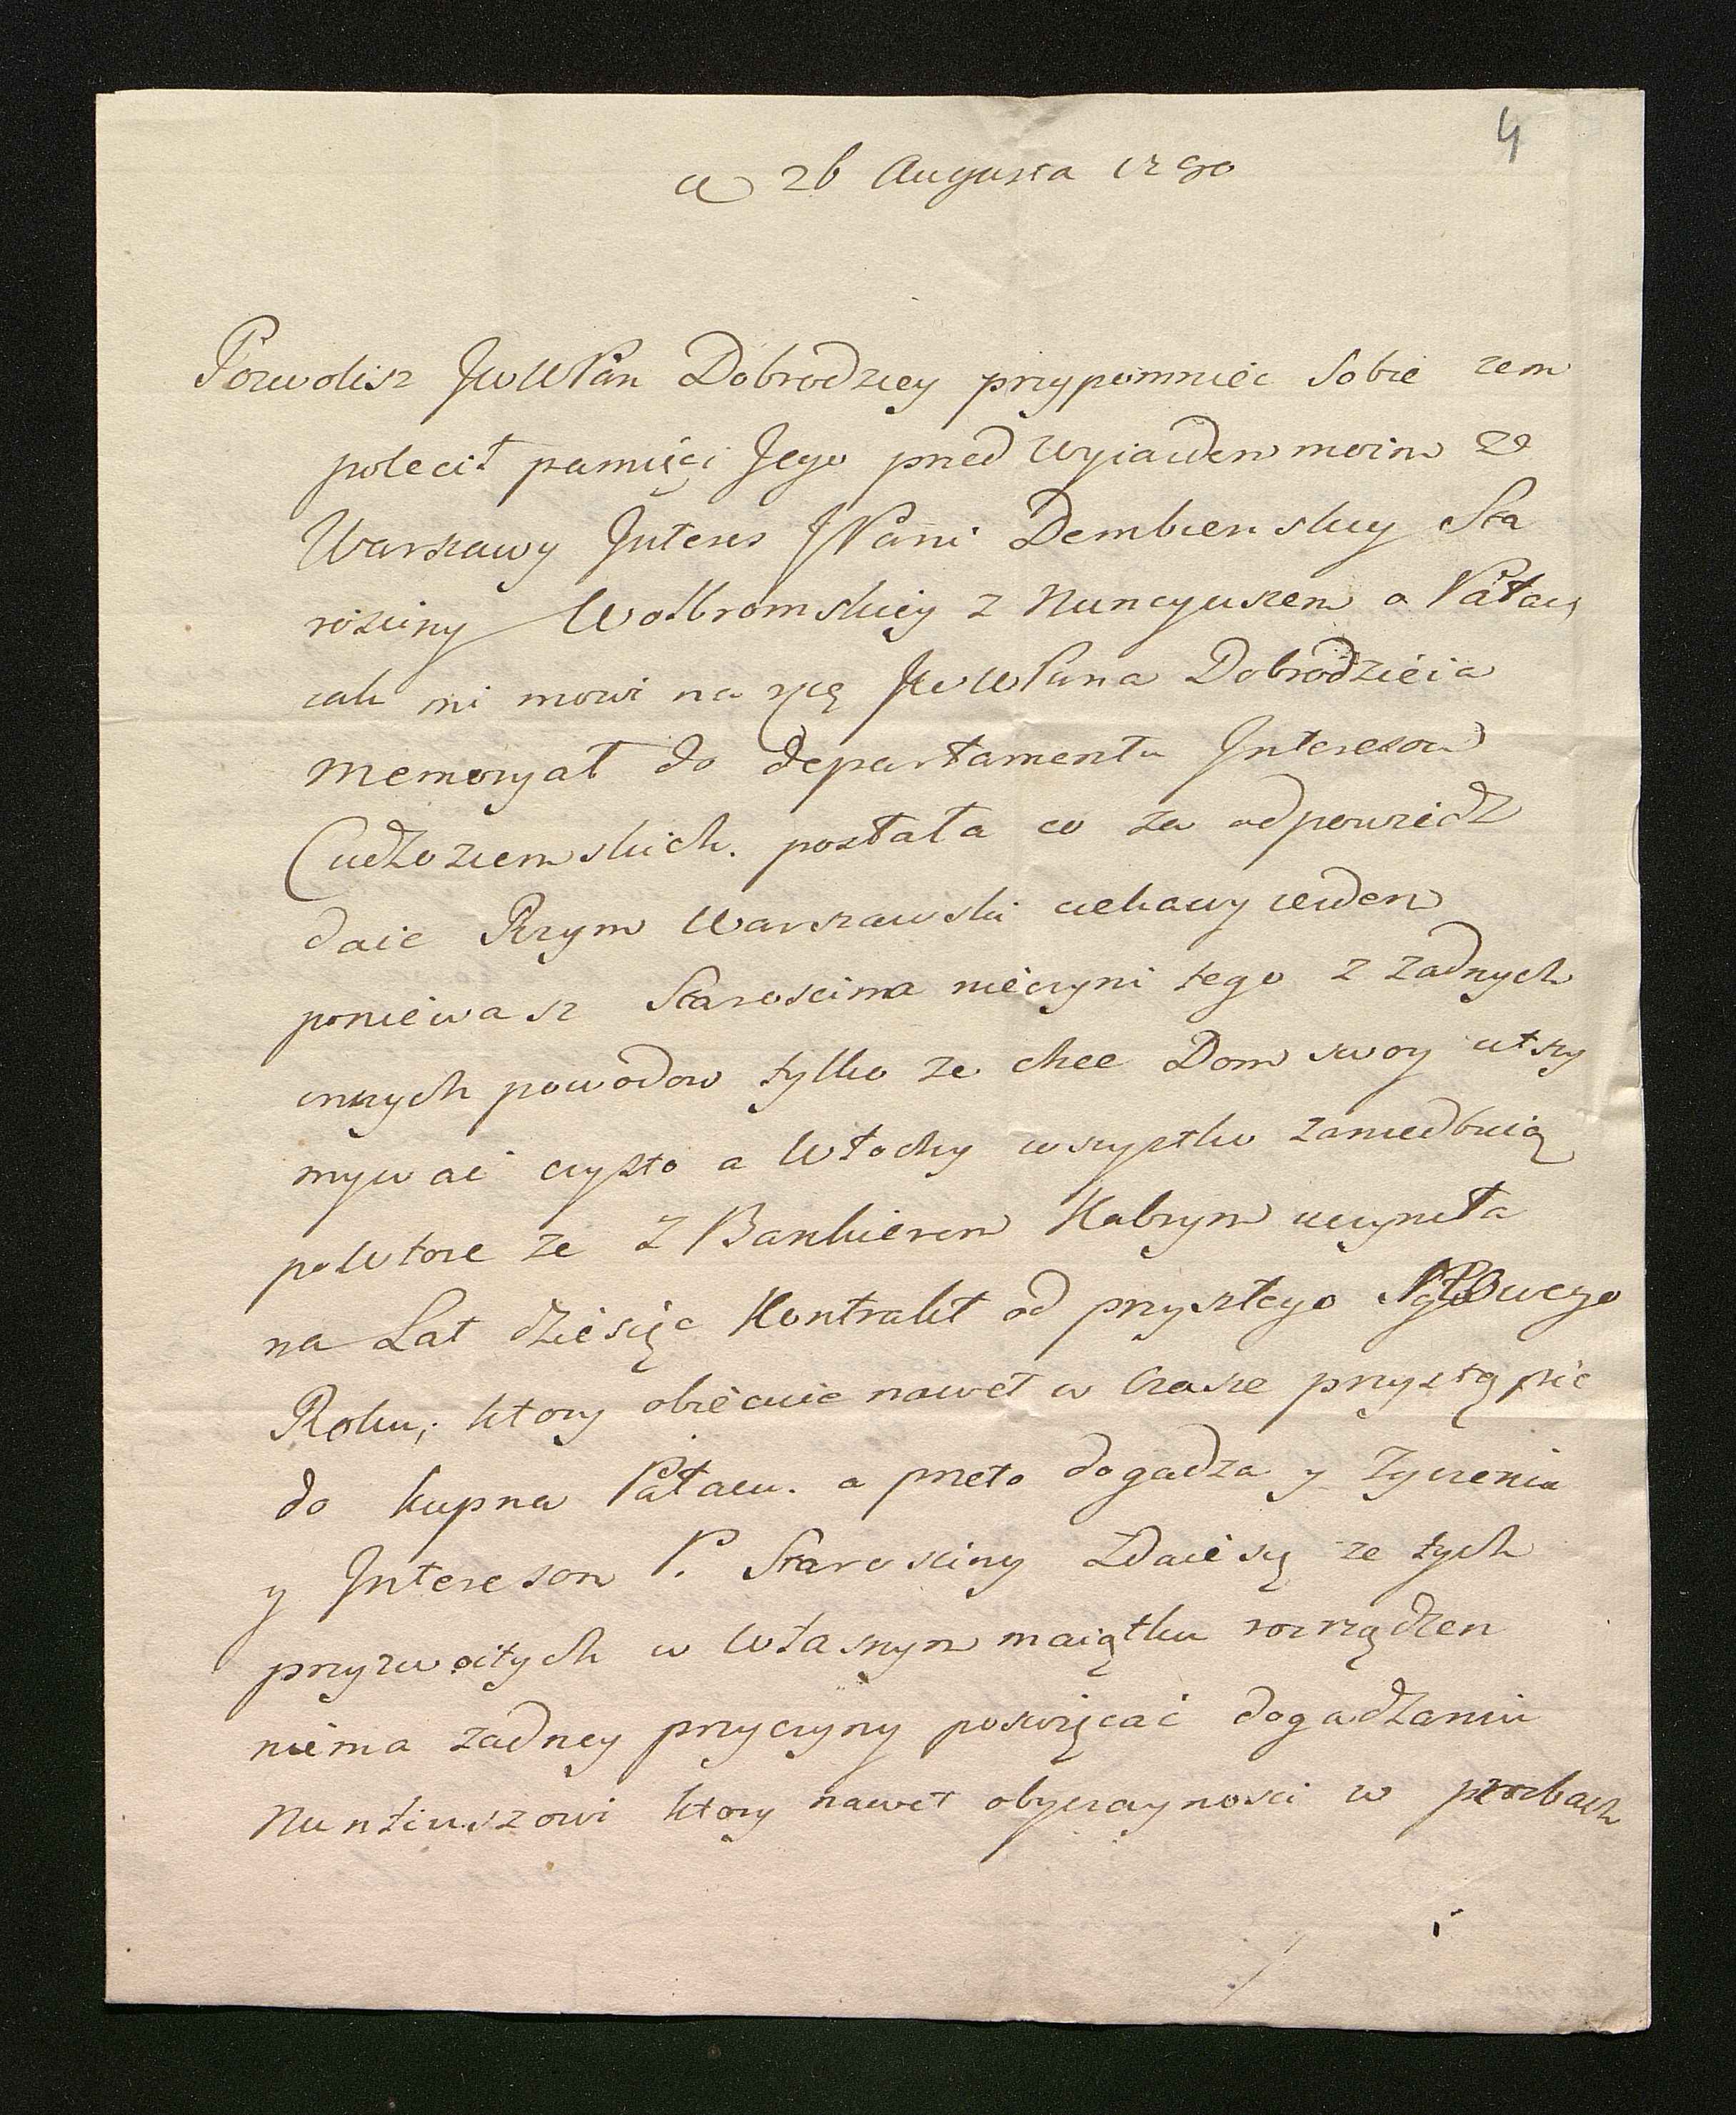 4
a 26 Augusta 1790
Pozwolisz JWWPan Dobrodziey przypomniec Sobie zem
polecił pamięci Jego przed Wyiazdem moim z
Warszawy Interes JPani Dembienskiey Sta
rosciny Wolbromskiey z Nuncyuszem o Pałac,
iak mi mowi na ręcę JWWPana Dobrodzieia
memoryał do departamentu Interesow
Cudzoziemskich. posłała co za odpowiedz
daie Rzym Warszawski ciekawy iestem
poniewasz Staroscina nieczyni tego z zadnych
innych powodow tylko ze chce Dom swoy utrzy
mywac czysto a Włochy wszystko zaniedbuią
powtore ze z Bankierem Kabrym uczyneła
na Lat dziesięc Kontrakt od przyszłego Nowego
Roku; ktory obiecuie nawet w Czasie przystąpic
do kupna Pałacu. a przeto dogadza y zyczenia
y Interesom P. Starosciny Zdaie się ze tych
przyzwoitych w własnym maiątku rozrządzen
niema zadney przyczyny poswięcać dogadzaniu
Nuntiuszowi ktory nawet obyczayności w prozbach